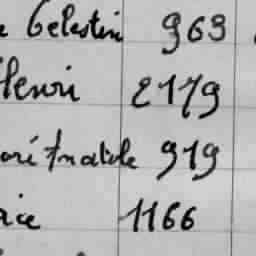 Celestin 969
Henri 2179
Anatole 919
1166